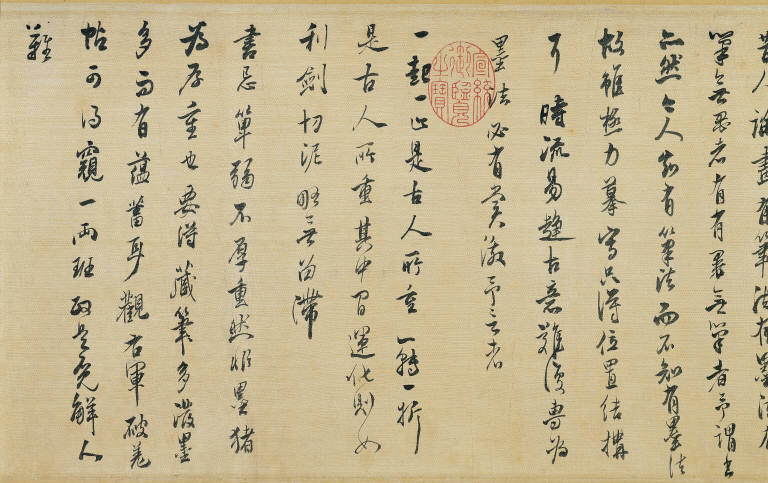 昔人論畫有筆法有墨法有
筆無墨者有有墨無筆者予謂書
亦然今人知有筆法而不知有墨法
故雖極力摹寫只得位置結構
耳時流易趨古意難復專為
墨法必有賞激予言者
一起一止是古人所重一轉一折
是古人所重其中間運化則如
利劍切泥略無留滯
書忌單弱不厚重然非墨豬
為厚重也要得藏筆多潑墨
多而有蘊蓄耳觀右軍破羌
帖可得窺一兩班政是索解人
難
宣統御覽之寶